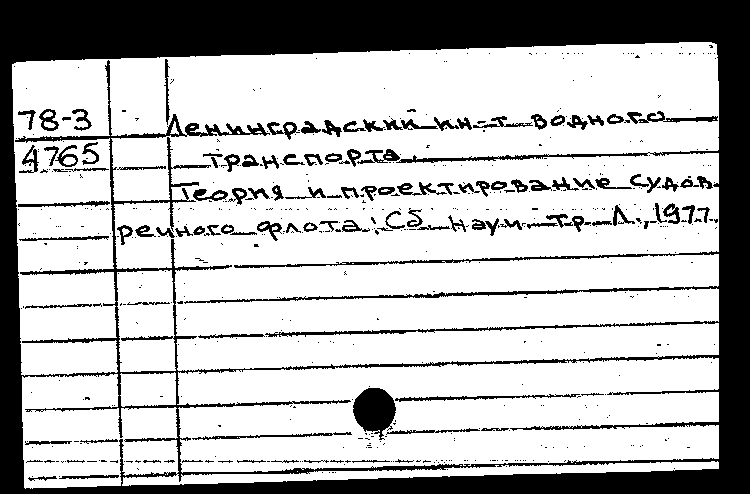 78-3 Ленинградский ин-т водного
4765 транспорта.
Теория и проектирование судов
речного флота: Сб. науч. тр. Л., 1977.